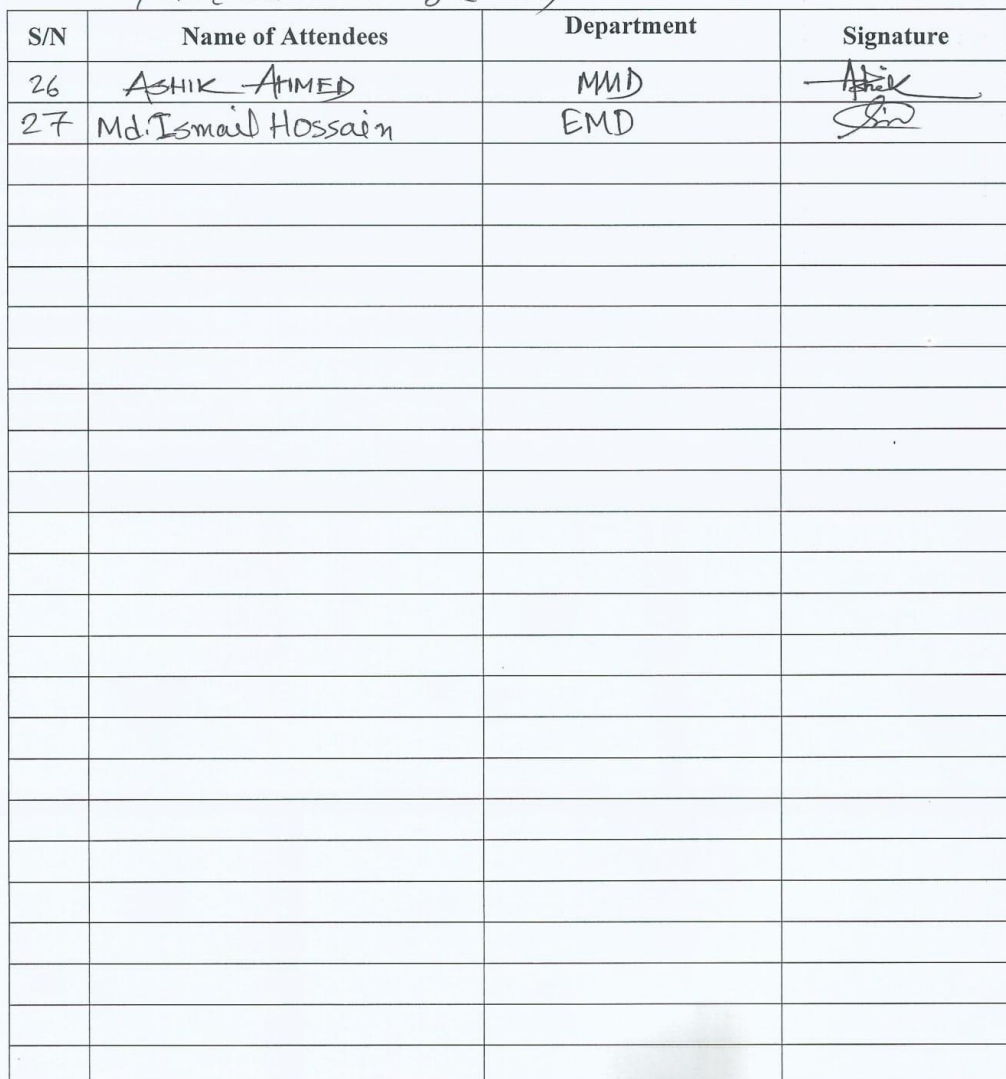 S/N Name of Attendees Department Signature
26 ASHIK AHMED MMD Ashik
27 Md. Ismail Hossain EMD